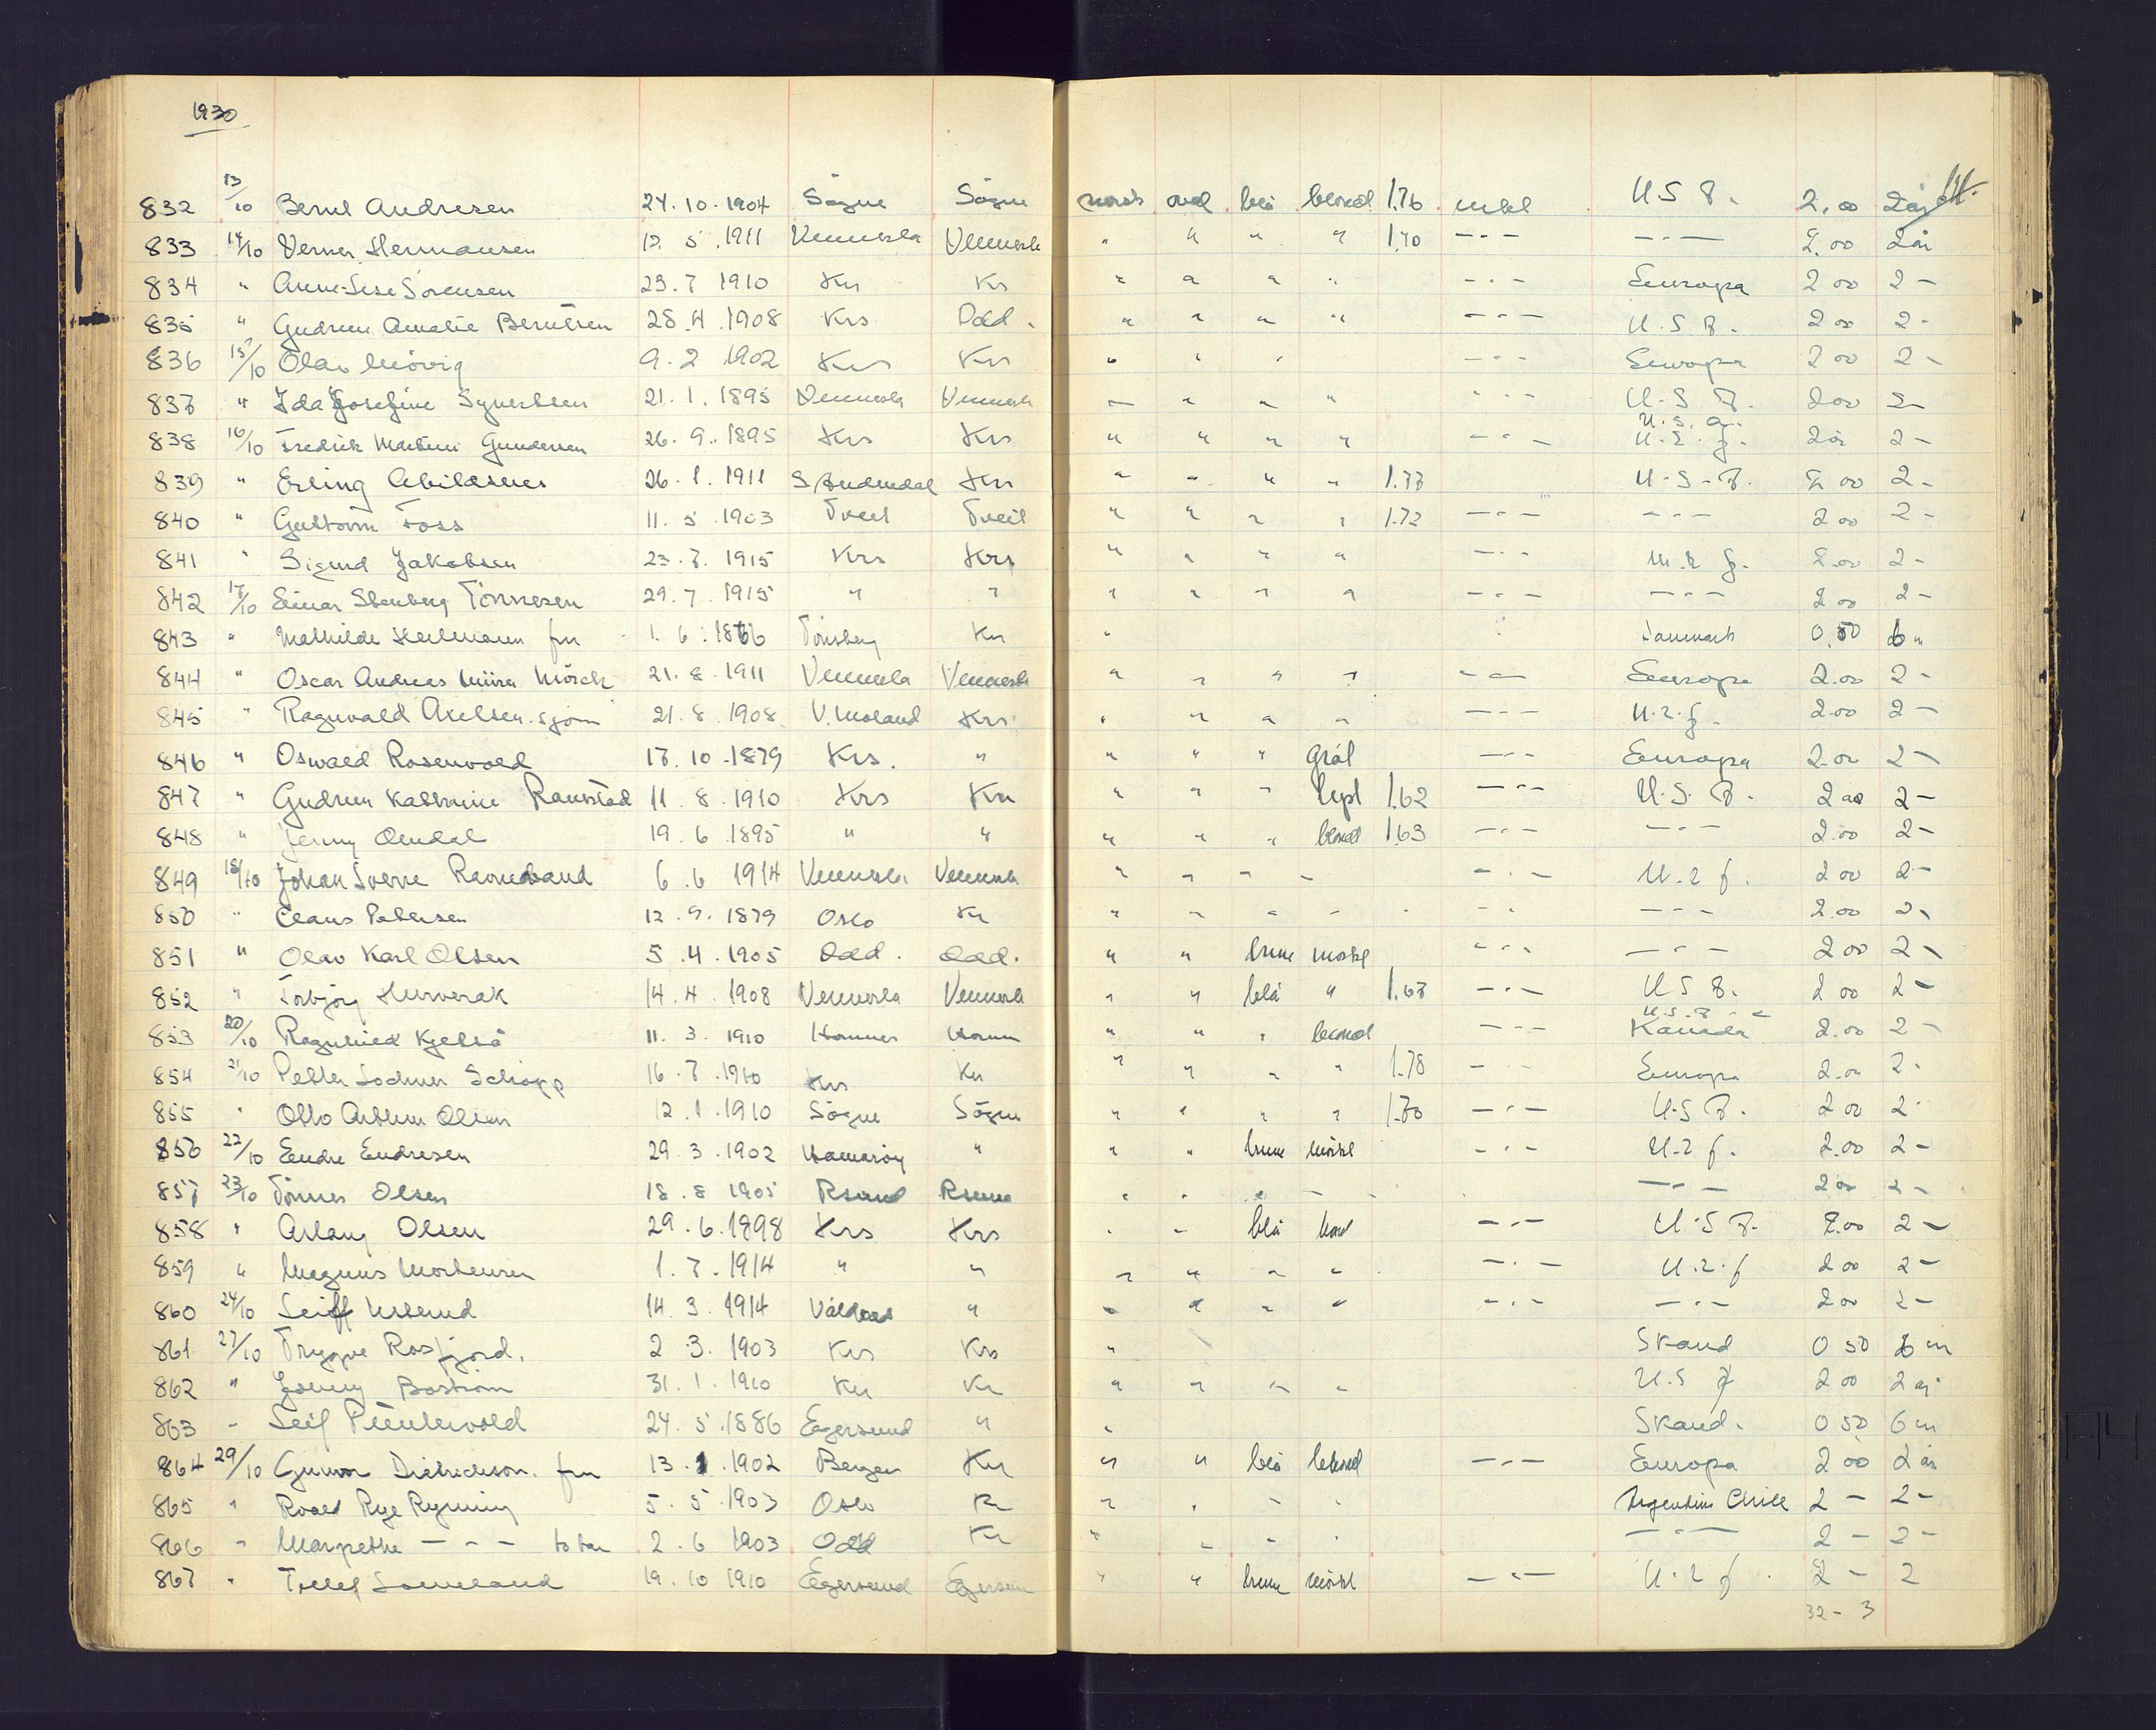 1930
832 13/10 Bernt Andresen 24.10.1904 Sögne Sögne norsk oval blå blond 1.76 enkel U S A. 2.00 2 år
833 14/10 Verner Hermansen 12. 5.1911 Vennesla Vennesla " " " " 1.70 - " - - " - 2.00 2 år
834 " Anne-Lise Sörensen 23.7 1910 Krs Krs " " " " - " - Europa 2 00 2 -
835 " Gudrun Amalie Berntsen 28.4.1908 Krs Odd. " " " " - " - U.S.A. 2 00 2 -
836 15/10 Olav Mövig 9.2 1902 Krs Krs " " " - " - Europa 2 00 2 -
837 " Ida Josefine Syvertsen 21.1.1895 Vennesla Vennesla " " " " - " - U.S.A. 2 00 2 -
838 16/10 Fredrik Martini Gundersen 26.9.1895 Krs Krs " " " " - " - U.S.A. U.R.f. 2 -
839 " Erling Abildsnes 26.1.1911 S Audnedal Krs " " " " 1.77 U.S.A. 2 00 2 -
840 " Guttorm Foss 11.5.1903 Tveit Tveit " " " " 1.72 - " - - " - 2 00 2 -
841 " Sigurd Jakobsen 23.7.1915 Krs Krs " " " " - " - U.R f. 2.00 2 -
842 17/10 Einar Stenberg Tönnesen 29.7.1915 " " " " " " - " - - " - 2 00 2 -
843 " Mathilde Heilmann fru 1.6.1866 Tönsberg Kr " Danmark 0.50 6 m
844 " Oscar Andreas Mörch 21.8.1911 Vennesla Vennesla " " " " - " - Europa 2.00 2 -
845 " Ragnvald Axelsen. sjöm 21.8.1908 V.Moland Krs " " " " - " - U.R.f. 2.00 2 -
846 " Oswald Rosenvold 17.10.1879 Krs. " " " " grål - " - Europa 2.00 2 -
847 " Gudrun Kathrine Raustad 11.8.1910 Krs Kr " " " lysl 1.62 - " - U.S.A. 2 00 2 -
848 " Jenny Omdal 19.6 1895 " " " " " blond 1.63 - " - - " - 2.00 2 -
849 18/10 Johan Sverre Ravnevand 6.6 1914 Vennesla Vennesla " " " " - " - U.R f. 2 00 2 -
850 " Claus Petersen 12.9.1879 Oslo Kr " " " " - " - - " - 2.00 2 -
851 " Olav Karl Olsen 5.4.1905 Odd. Odd. " " brune mörkl - " - - " - 2 00 2 -
852 " Torbjörg Hunverak 14.4.1908 Vennesla Vennesla " " blå " 1.67 - " - U S A. 2 00 2 -
853 20/10 Ragnhild Kjelså 11.3.1910 " " " blond - " - U.S.A. Kanada 2.00 2 -
854 21/10 Petter Lochner Schöpp 16.7.1910 Krs Kr " " " " 1.78 - " - Europa 2.00 2 -
855 " Otto Anthun Olsen 12.1.1910 Sögne Sögne " " " " 1.70 - " - U.S A. 2 00 2 -
856 22/10 Endre Endresen 29.3.1902 Hamaröy " " " brune mörkl - " - U.R f. 2.00 2 -
857 23/10 Tönnes Olsen 18.8 1905 Rsund Rsund " " " " - " - 2 00 2 -
858 " Aslaug Olsen 29.6.1898 Krs Krs " " blå blond - " - U.S A. 2.00 2 -
859 " Magnus Mortensen 1.7.1914 " " " " " " - " - U.R.f 2 00 2 -
860 24/10 Leiff 14.3.1914 " " " " " - " - - " - 2 00 2 -
861 27/10 Trygve Rosfjord. 2.3.1903 Krs Krs " Skand 0 50 6 m
862 " Jenny Boström 31.1.1910 Kr Kr " " " " U.S A 2 00 2 år
863 " Leif Puntervold 24.5.1886 Egersund " " Skand. 0 50 6 m
864 29/10 Gunvor Dietrichson. fru 13.1.1902 Bergen Kr " " blå blond - " - Europa 2 00 2 år
865 " Roald Rye Ryning 5.5.1903 Oslo Kr " " " " Argentina Chile 2 - 2 -
866 " Margrethe - " - 2.6 1903 Odd Kr " " " " - " - 2 - 2 -
867 " Tellef Lauvland 19.10 1910 Egersund Egersun " " brune mörkl - " - U.R f. 2 - 2
32 - 3